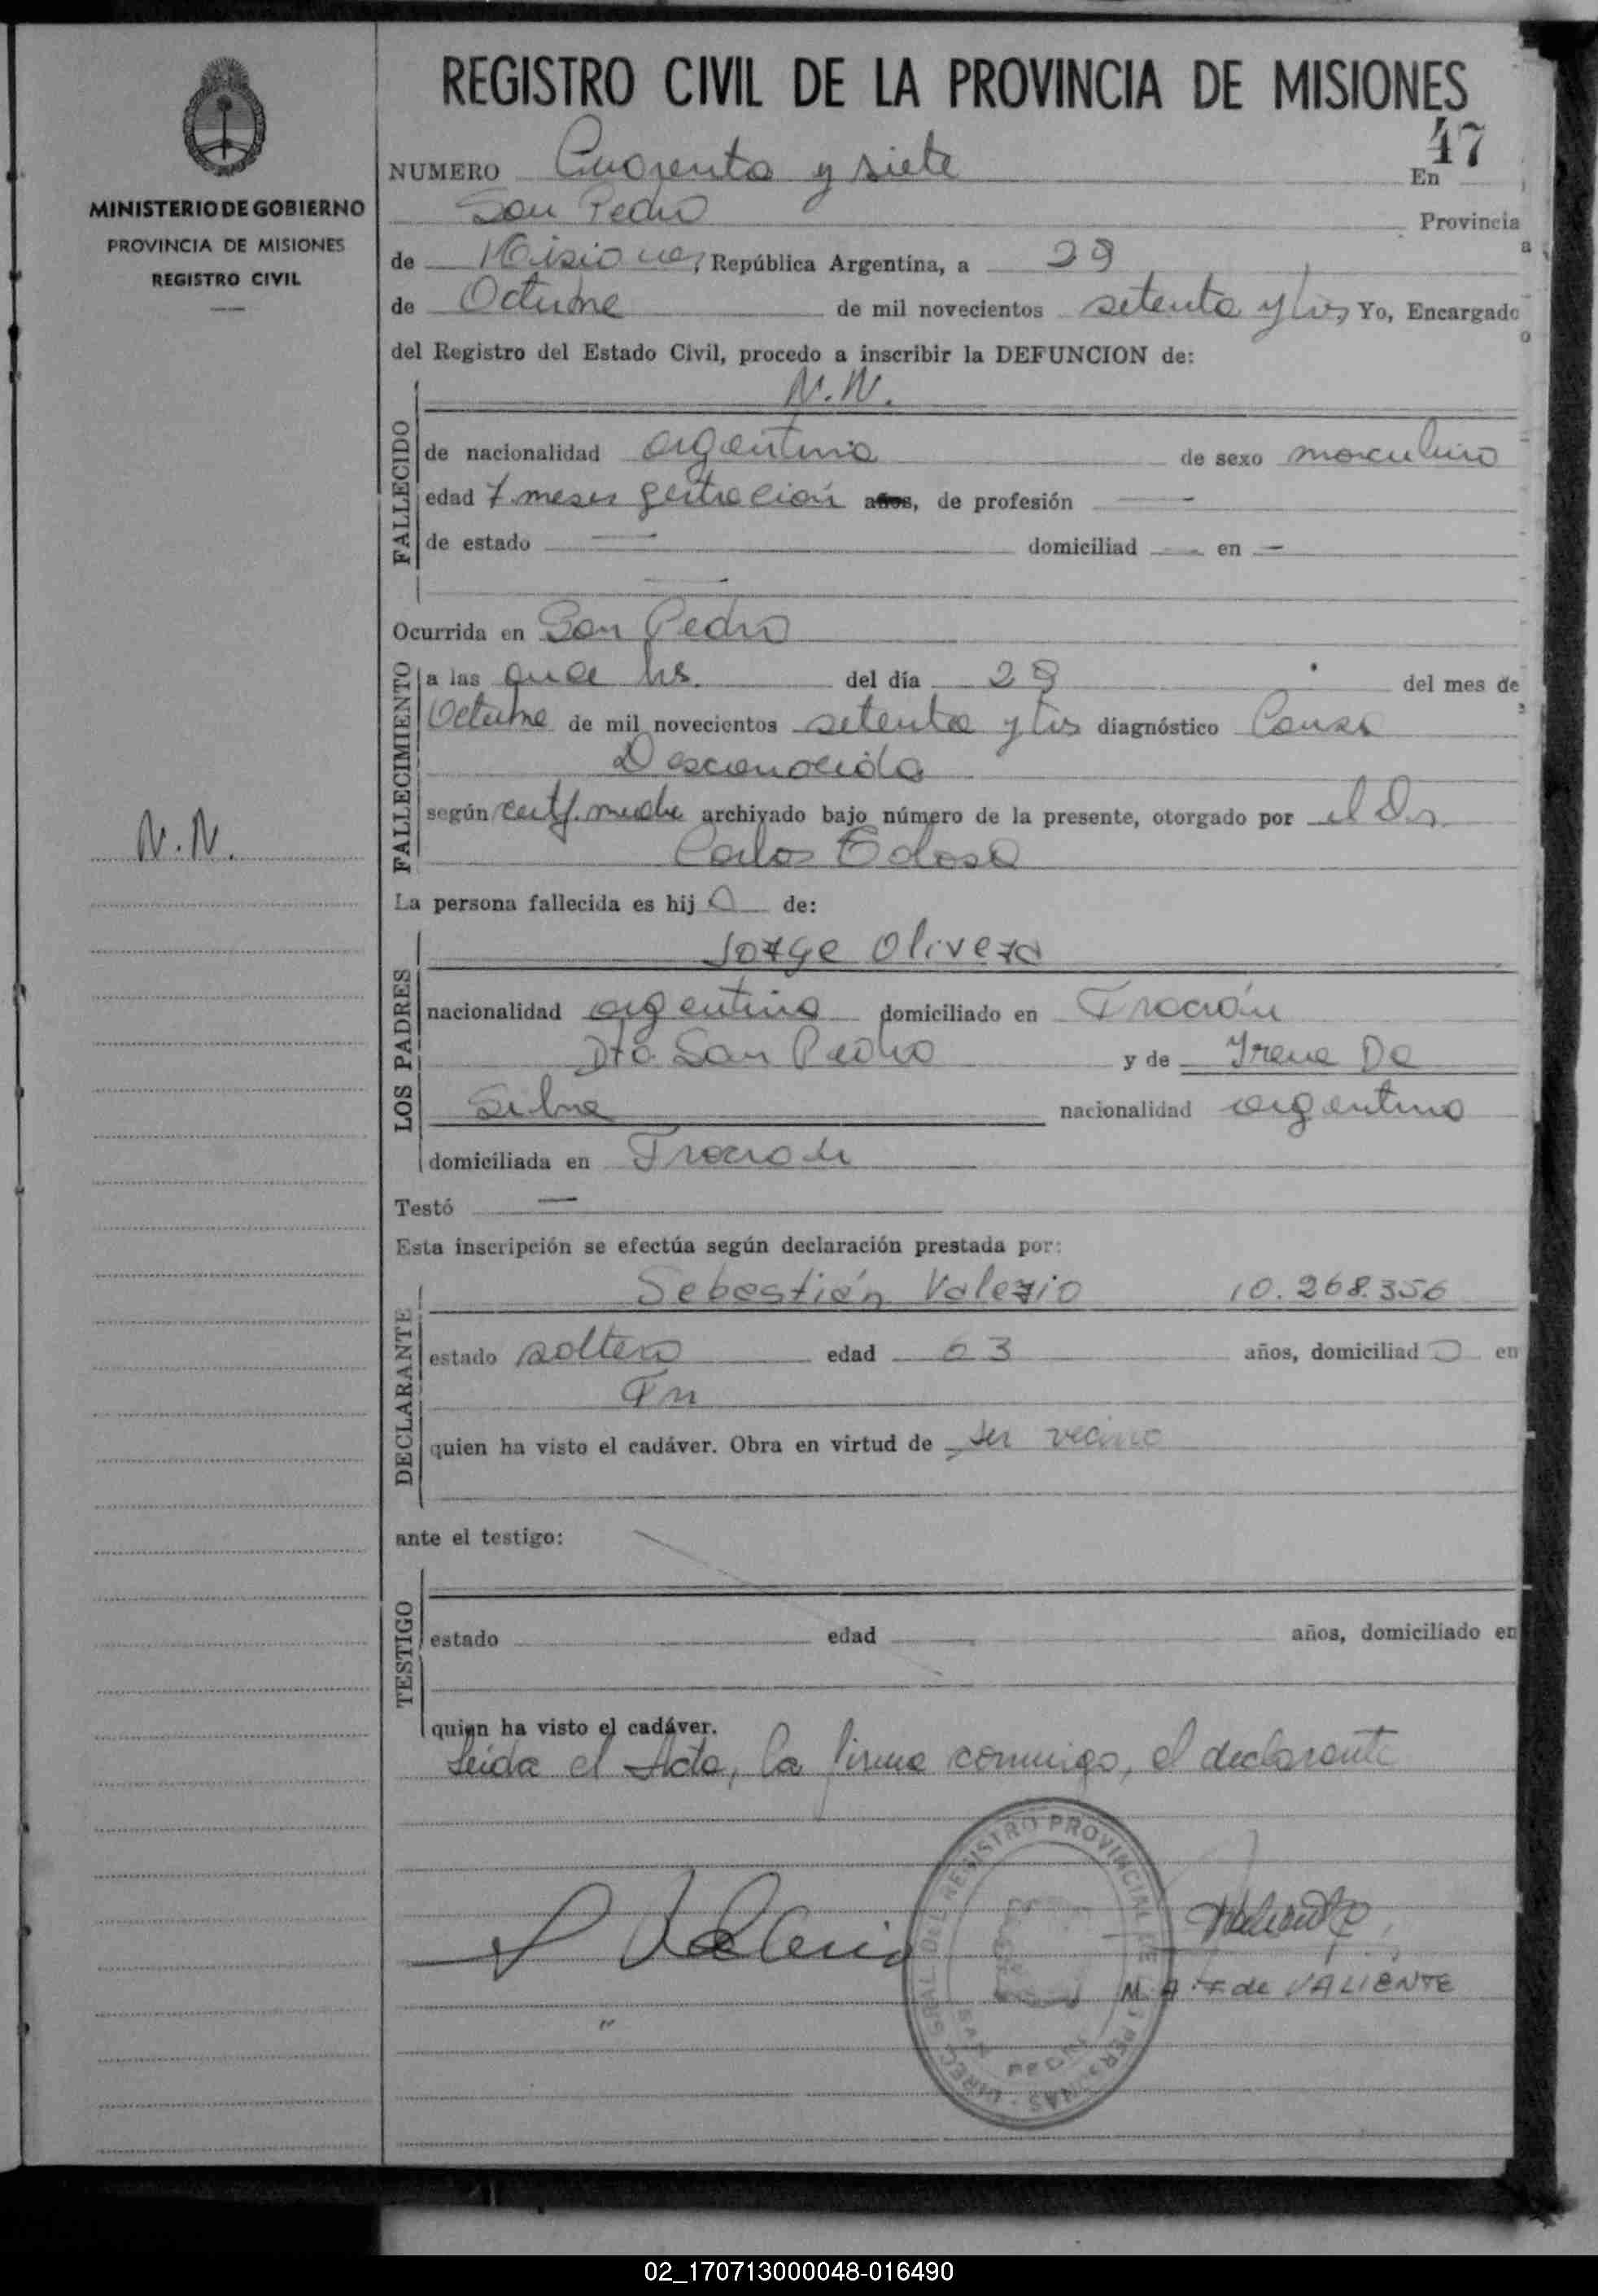 REGISTRO CIVIL DE LA PROVINCIA DE MISIONES
47
MINISTERIO DE GOBIERNO
PROVINCIA DE MISIONES
REGISTRO CIVIL
NUMERO Cuarenta y siete En
San Pedro Provincia
de Misiones, República Argentina, a 29
de Octubre de mil novecientos setenta y tres Yo, Encargado
del Registro del Estado Civil, procedo a inscribir la DEFUNCION de:
N.N.
FALLECIDO
de nacionalidad argentina de sexo masculino
edad 7 meses gestación años, de profesión —
de estado — domiciliad — en —
—
Ocurrida en San Pedro
FALLECIMIENTO
a las once hs. del día 29 del mes de
Octubre de mil novecientos setenta y tres diagnóstico Causa
Desconocida
según certf. medic archivado bajo número de la presente, otorgado por el Dr.
Carlos Tolosa
N.N.
La persona fallecida es hij o de:
LOS PADRES
Jorge Olivera
nacionalidad argentina domiciliado en Fración
Dto San Pedro y de Irene Da
Silva nacionalidad argentina
domiciliada en Fración
Testó —
Esta inscripción se efectúa según declaración prestada por:
DECLARANTE
Sebastián Valerio 10.268.356
estado soltero edad 63 años, domiciliad o en
quien ha visto el cadáver. Obra en virtud de ser vecino
ante el testigo:
TESTIGO
estado edad años, domiciliado en
quien ha visto el cadáver.
Leida el Acta, la firma conmigo, el declarante
S Valerio
M. A. F de VALIENTE
DIREC. GRAL. DEL REGISTRO PROVINCIAL DE LAS PERSONAS
SAN PEDRO
02_170713000048-016490